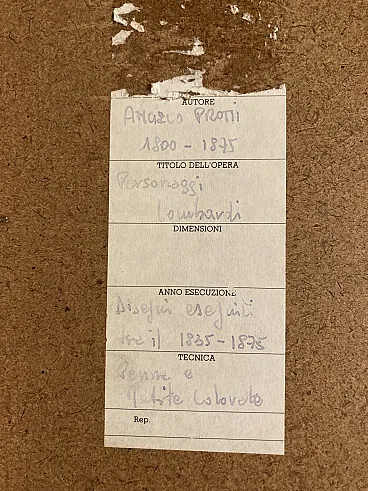 AUTORE
Angelo Protti
1800 - 1875
TITOLO DELL'OPERA
Personaggi
Lombardi
DIMENSIONI
ANNO ESECUZIONE
Disegni eseguiti
tra il 1835 - 1875
TECNICA
Penna e
Matite Colorate
Rep.